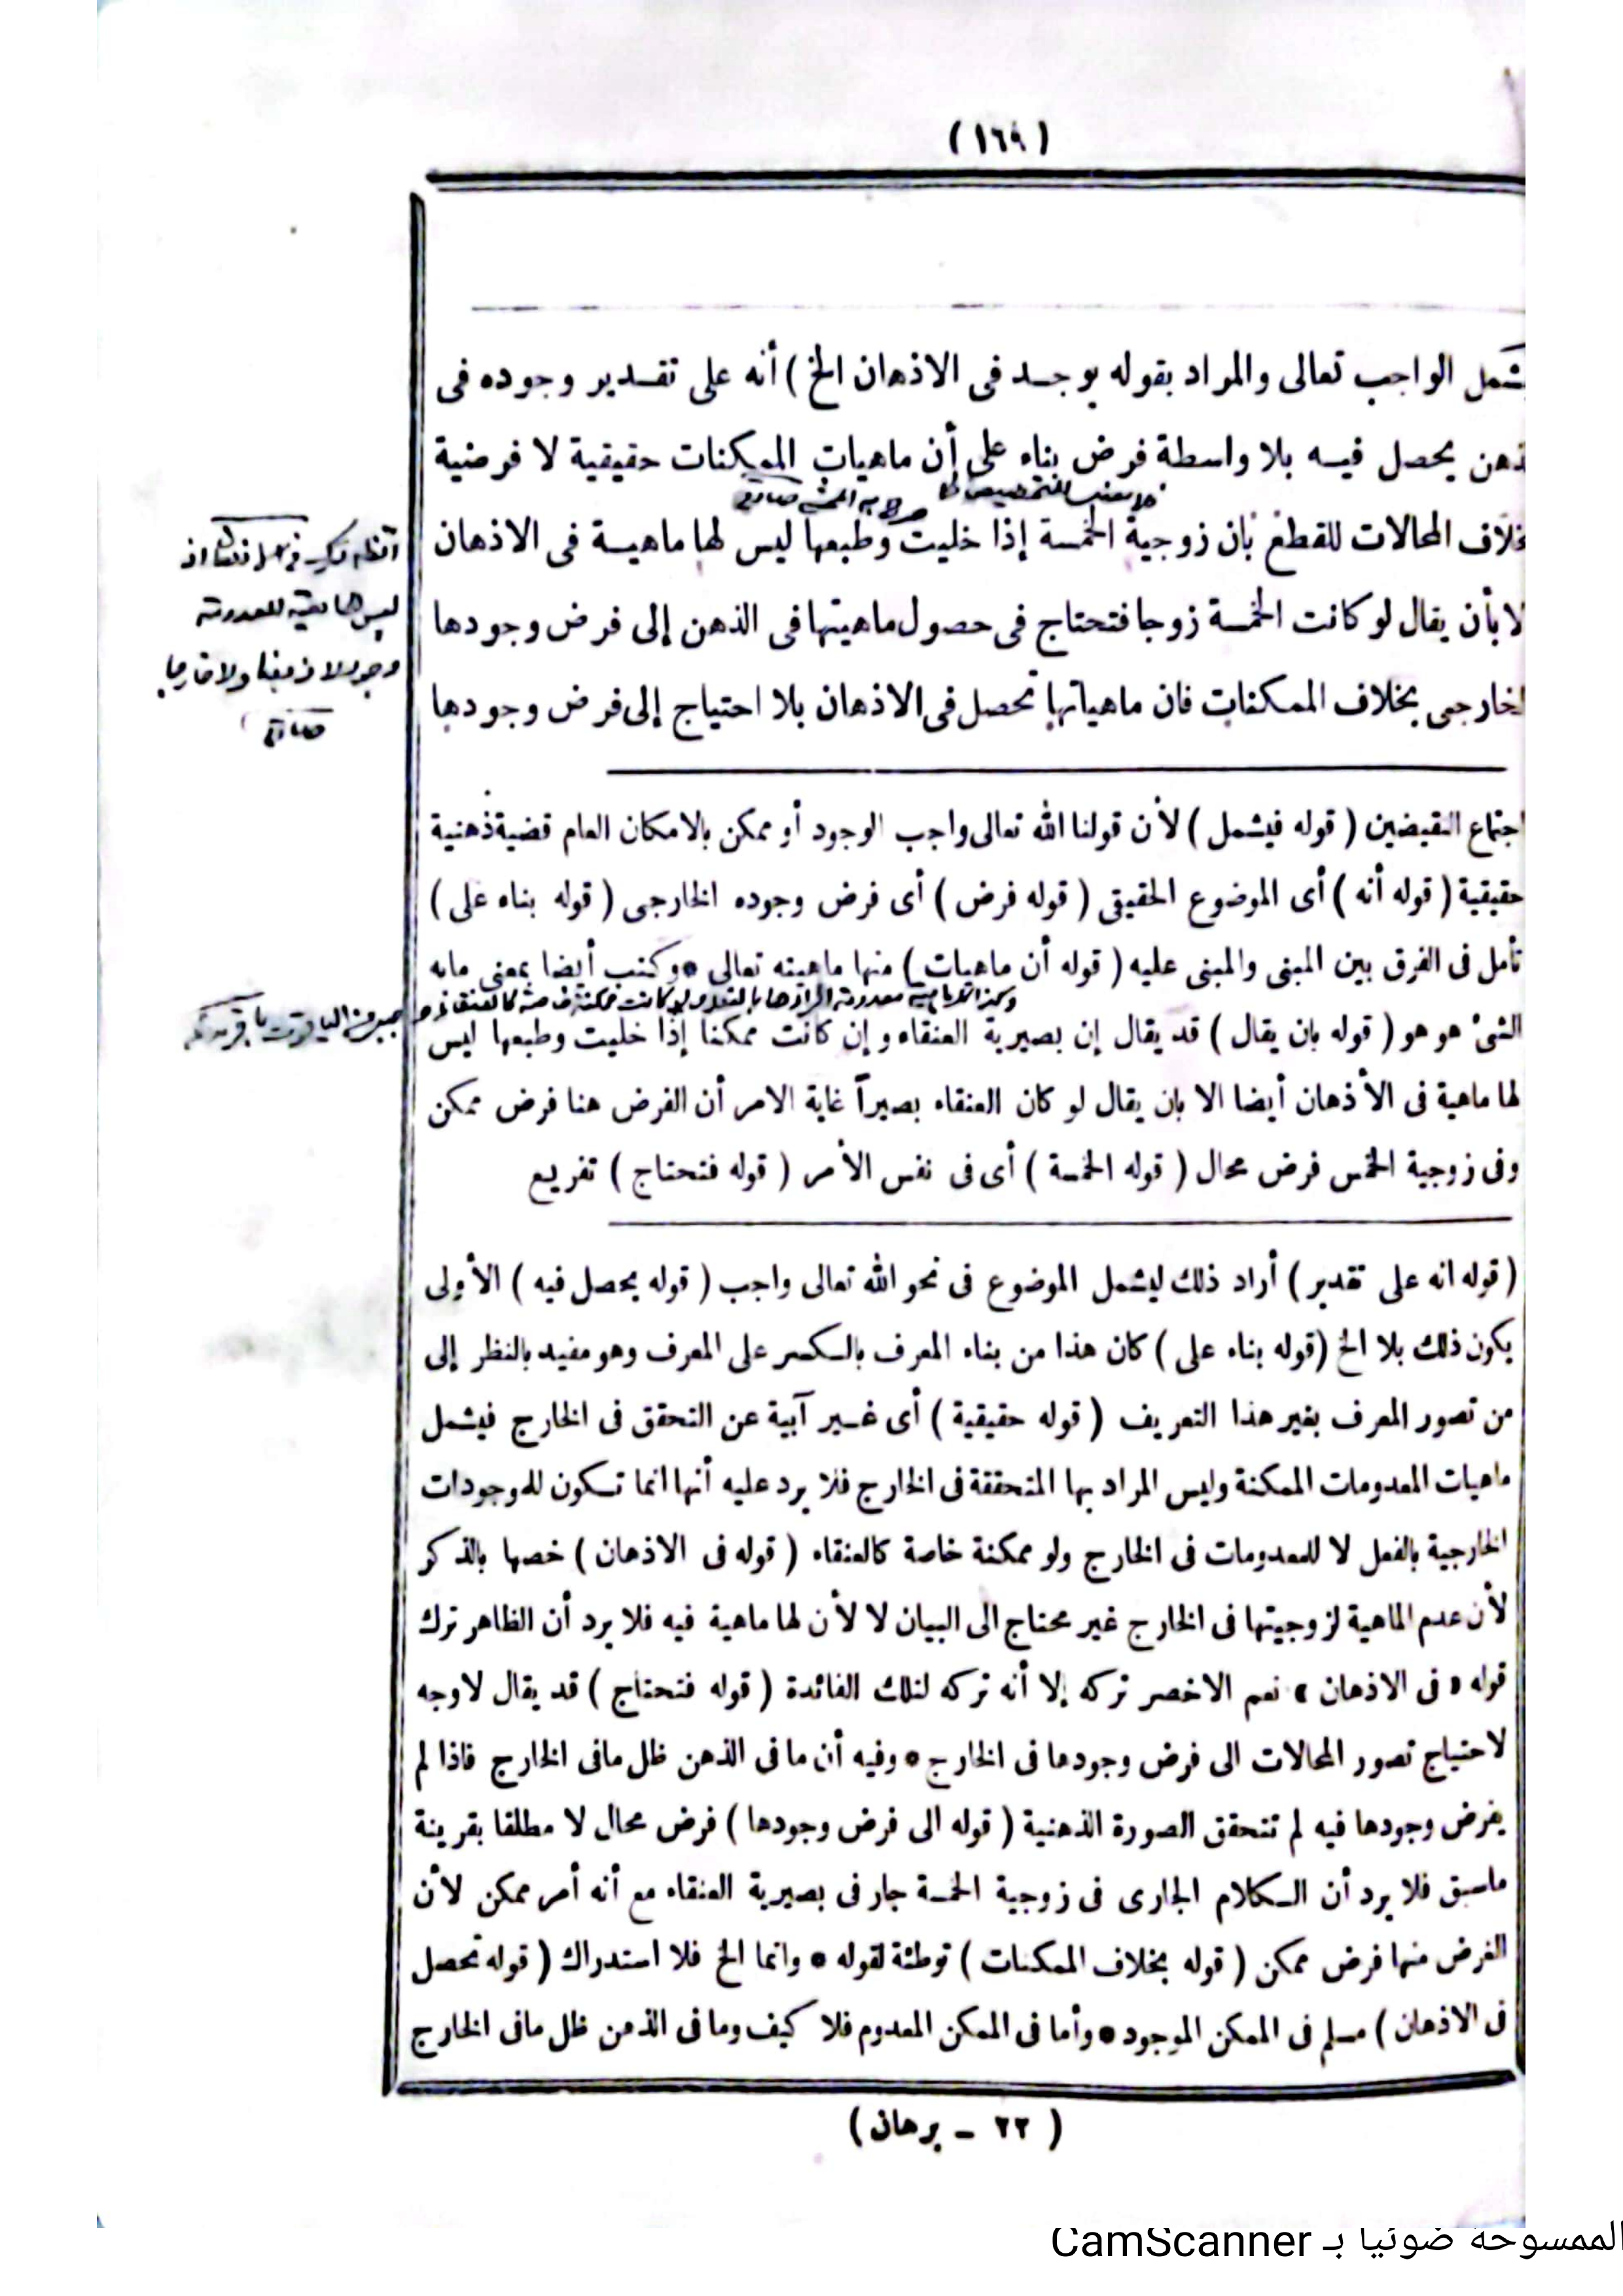 (١٦٩)
يشمل الواجب تعالى والمراد بقوله يوجد فى الاذهان الخ ) أنه على تقدير وجوده فى
ذهن يحصل فيه بلا واسطة فرض بناء على أن ماهيات الممكنات حقيقية لا فرضية
بخلاف المحالات للقطع بأن زوجية الخمسة إذا خليت وطبعها ليس لها ماهية فى الاذهان
لا بأن يقال لو كانت الخمسة زوجا فتحتاج فى حصول ماهيتها فى الذهن إلى فرض وجودها
الخارجى بخلاف الممكنات فان ماهياتها تحصل فى الاذهان بلا احتياج إلى فرض وجودها
اجتماع النقيضين ( قوله فيشمل ) لأن قولنا الله تعالى واجب الوجود أو ممكن بالامكان العام قضية ذهنية
حقيقية ( قوله أنه ) أى الموضوع الحقيقى ( قوله فرض ) أى فرض وجوده الخارجى ( قوله بناء على )
تأمل فى الفرق بين المبنى والمبنى عليه ( قوله أن ماهيات ) منها ماهيته تعالى * وكتب أيضا بمعنى مابه
الشئ هو هو ( قوله بان يقال ) قد يقال إن بصيرية العنقاء و إن كانت ممكنا إذا خليت وطبعها ليس
لها ماهية فى الأذهان أيضا الا بان يقال لو كان العنقاء بصيراً غاية الامر أن الفرض هنا فرض ممكن
وفى زوجية الخمس فرض محال ( قوله الخمسة ) أى فى نفس الأمر ( قوله فتحتاج ) تفريع
( قوله انه على تقدير ) أراد ذلك ليشمل الموضوع فى نحو الله تعالى واجب ( قوله يحصل فيه ) الأولى
يكون ذلك بلا الخ ( قوله بناء على ) كان هذا من بناء المعرف بالكسر على المعرف وهو مفيد بالنظر إلى
من تصور المعرف بغير هذا التعريف ( قوله حقيقية ) أى غير آبية عن التحقق فى الخارج فيشمل
ماهيات المعدومات الممكنة وليس المراد بها المتحققة فى الخارج فلا يرد عليه أنها انما تكون للموجودات
الخارجية بالفعل لا للمعدومات فى الخارج ولو ممكنة خاصة كالعنقاء ( قوله فى الاذهان ) خصها بالذكر
لأن عدم الماهية لزوجيتها فى الخارج غير محتاج الى البيان لا لأن لها ماهية فيه فلا يرد أن الظاهر ترك
قوله « فى الاذهان » نعم الاخصر تركه إلا أنه تركه لتلك الفائدة ( قوله فتحتاج ) قد يقال لاوجه
لاحتياج تصور المحالات الى فرض وجودها فى الخارج * وفيه أن ما فى الذهن ظل مافى الخارج فاذا لم
يفرض وجودها فيه لم تتحقق الصورة الذهنية ( قوله الى فرض وجودها ) فرض محال لا مطلقا بقرينة
ماسبق فلا يرد أن الكلام الجارى فى زوجية الخمسة جار فى بصيرية العنقاء مع أنه أمر ممكن لأن
الفرض منها فرض ممكن ( قوله بخلاف الممكنات ) توطئة لقوله * وانما الخ فلا استدراك ( قوله تحصل
فى الاذهان ) مسلم فى الممكن الموجود * وأما فى الممكن المعدوم فلا كيف وما فى الذهن ظل مافى الخارج
( ٢٢ ــ برهان )
الممسوحة ضوئيا بـ CamScanner